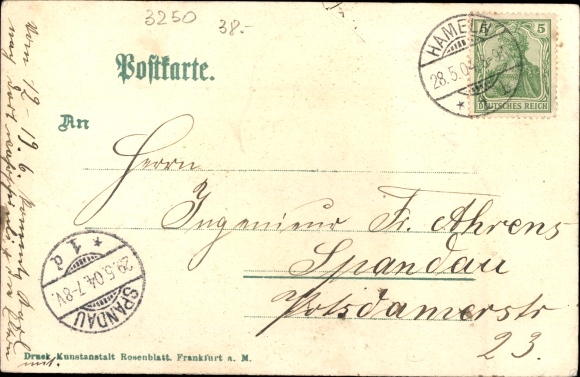 3250
38.-
Postkarte.
HAMELN
28.5.04
5
DEUTSCHES REICH
An
Herrn
Ingenieur Fr. Ahrens
Spandau
Potsdamerstr
23.
SPANDAU
29.5.04.7-8V.
* 1 d
Vom 12-19.6.
mit.
Druck Kunstanstalt Rosenblatt. Frankfurt a. M.